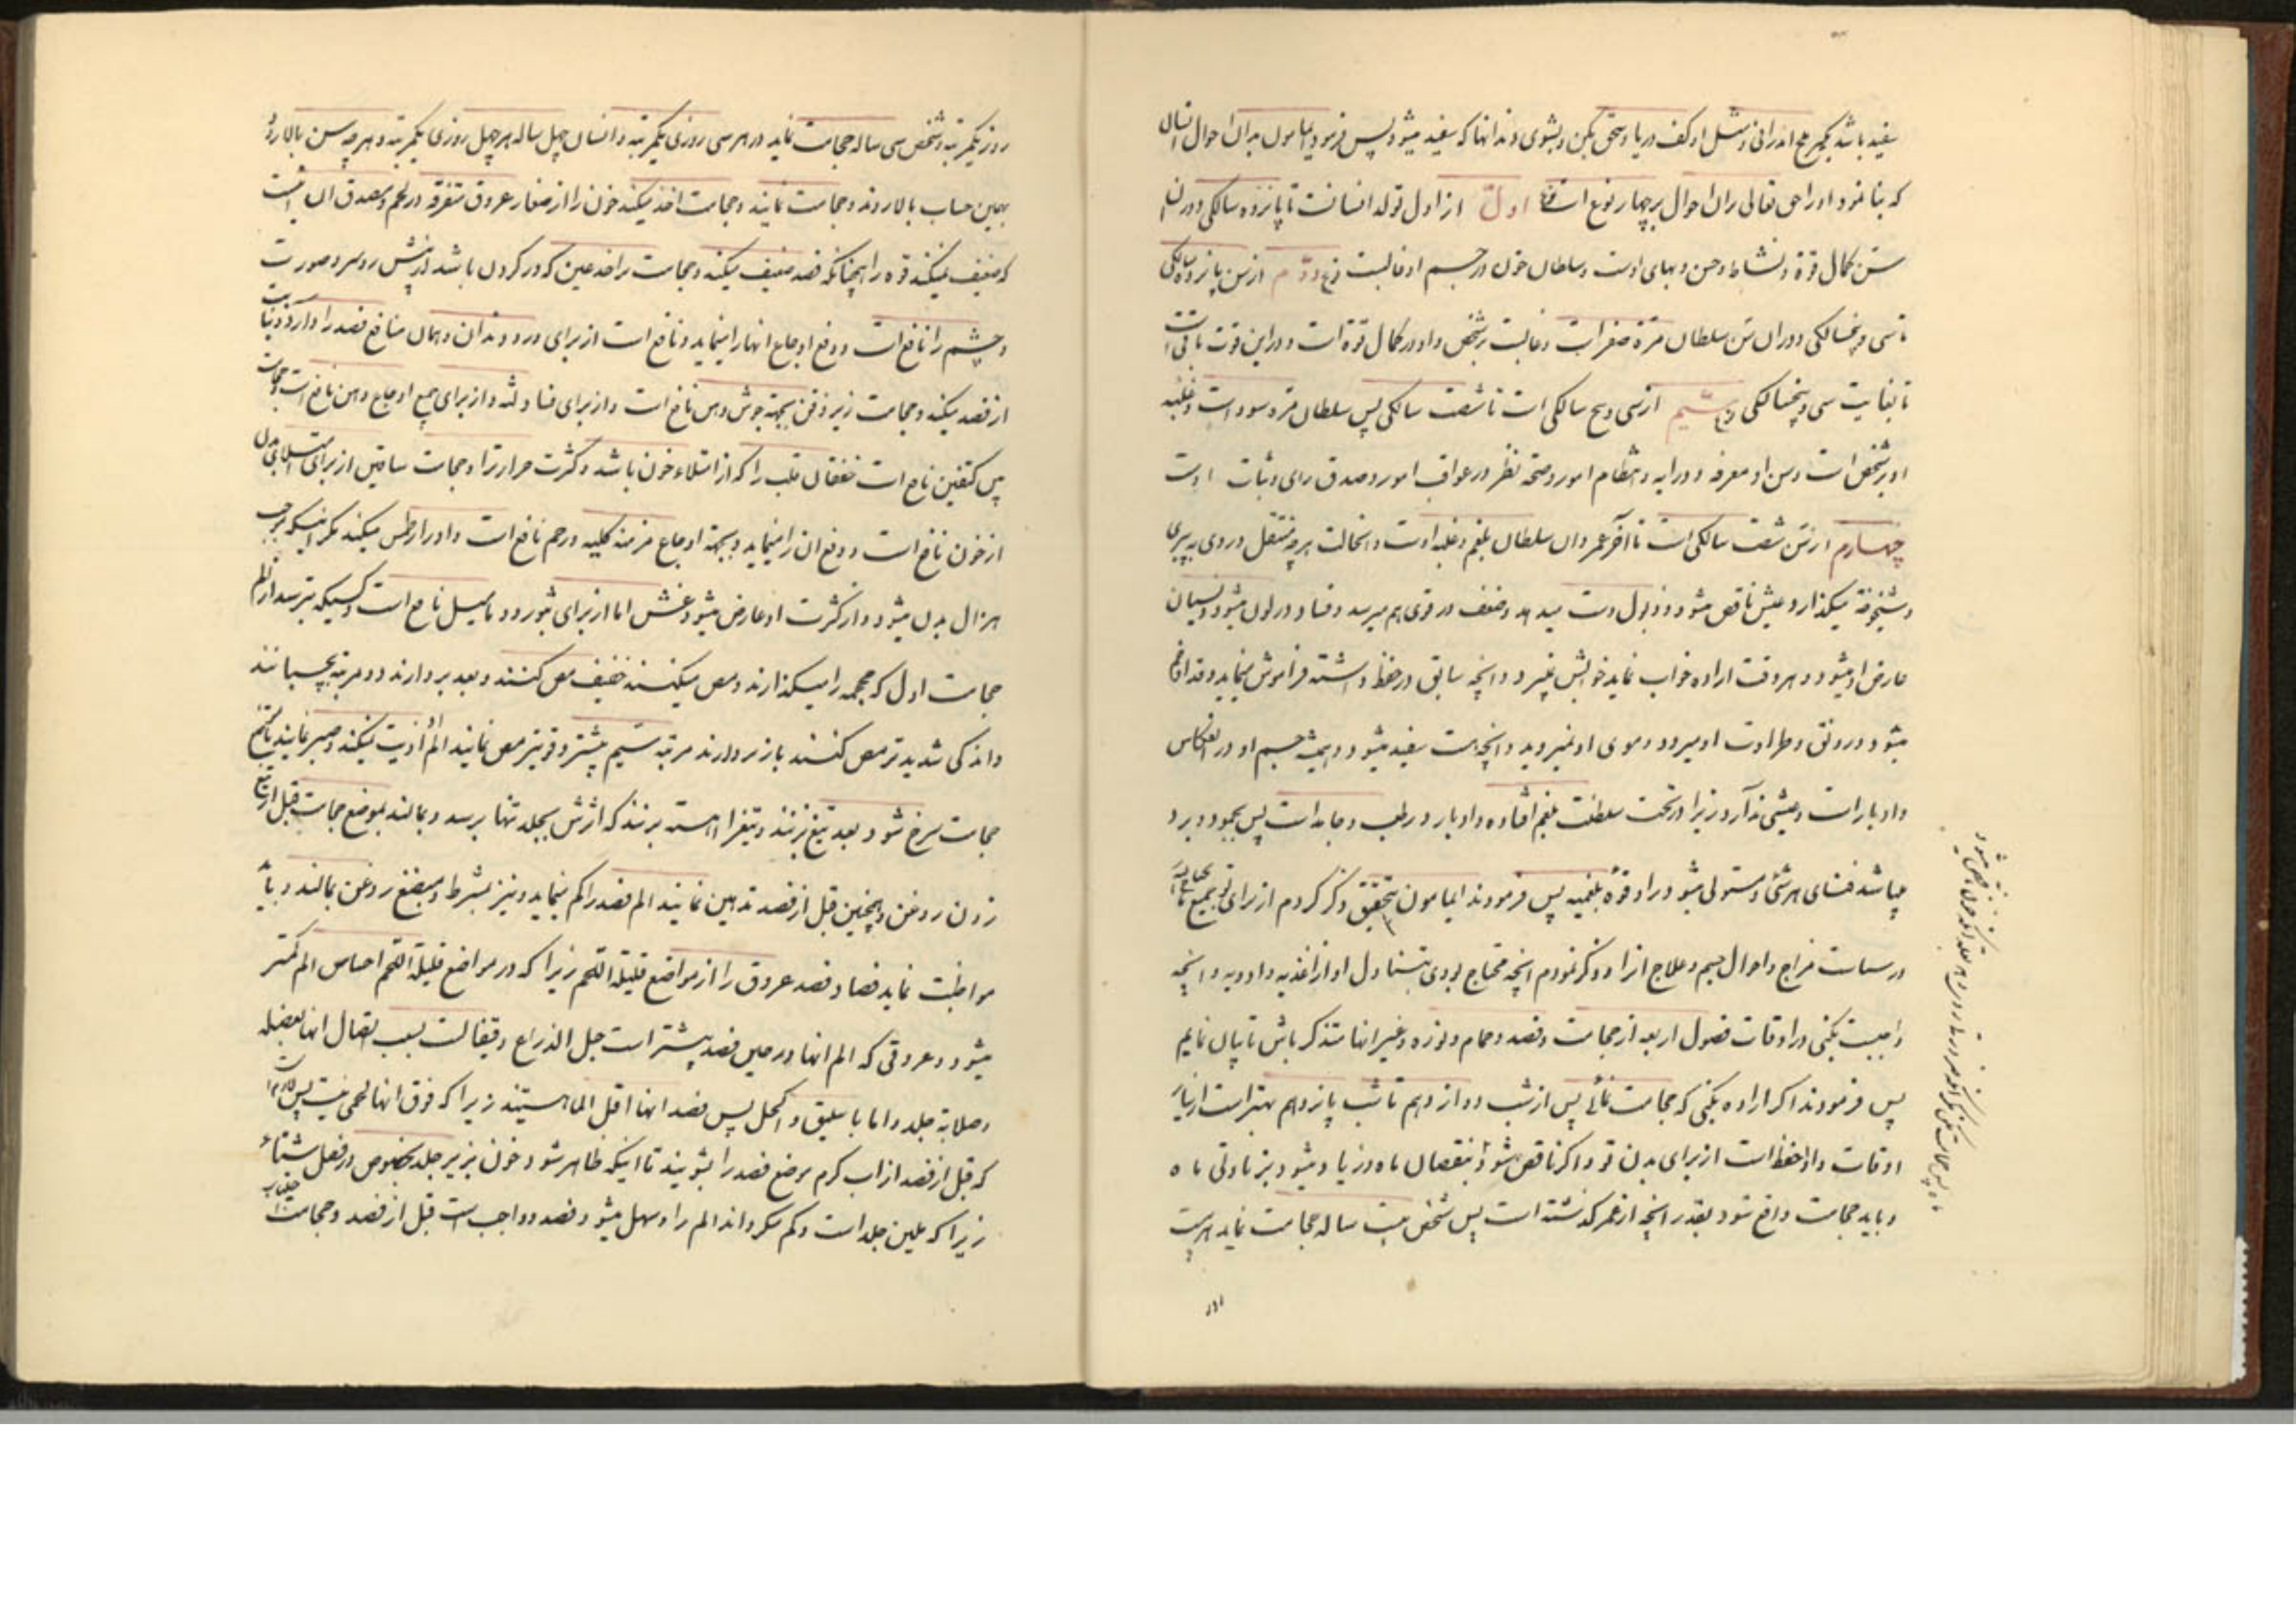 سفید باشد بگیر ملح اندرانی و مثل او کف دریا و سحق بکن و بشوی دندانها که سفید میشود پس فرمود یا مامون بدان احوال انسان
که بنا نمود او را حق تعالی بران احوال بر چهار نوع است نوع اول از اول تولد انسانست تا پانزده سالگی و در ان
سن کمال قوة و نشاط و حسن و بهای اوست و سلطان خون در جسم او غالبست نوع دوّم از سن پانزده سالگی
تا سی و پنجسالگی و دران سن سلطان مرّه صفراست و غالبست بر شخص و او در کمال قوّة است و در این قوت باقی است
تا بغایت سی و پنجسالگی نوع سیّم از سی و پنج سالگی است تا شصت سالگی پس سلطان مرّه سودا است و غلبه
او بر شخص است و سن او معرفه و درایه و انتظام امور و صحّه نظر در عواقب امور و صدق رای و ثبات اوست
چهارم از سن شصت سالگی است تا آخر عمر و ان سلطان بلغم و غلبه اوست و انحالت هرچه منتقل و روی به پیری
و شیخوخة میگذارد و عیش ناقص میشود و ذبول دست میدهد و ضعف در قوی بهم میرسد و فساد در لون میشود و نسیان
عارض او میشود و هر وقت اراده خواب نماید خوابش نمیبرد و انچه سابق در حفظ داشته فراموش مینماید
میشود و رونق و طراوت او میرود و موی او نمیروید و انچه هست سفید میشود و همیشه جسم او در انعکاس
و ادبار است و عیشی ندارد زیرا در تحت سلطنت بلغم افتاده و او بارد و رطب و جامد است پس بجمود و برد
میباشد فنای هر شئ و مستولی میشود در او قوّه بلغمیه پس فرمودند ایمامون بتحقیق ذکر کردم از برای تو جمیع ما یحتاج الیه
در سیاست مزاج و احوال جسم و علاج انرا و ذکر نمودم انچه محتاج بودی بتناول او از اغذیه و ادویه و انچه
واجبست بکنی در اوقات فصول اربعه از حجامت و فصد و حمام و نوره و غیر انها متذکر باش تا بیان نمایم
پس فرمودند اگر اراده بکنی که حجامت نمائی پس از شب دوازدهم تا شب پانزدهم بهتر است از سایر
اوقات و او احفظ است از برای بدن تو و اگر ناقص شود بنقصان ماه و زیاد میشود بزیادتی ماه
و باید حجامت واقع شود بقدر انچه از عمر گذشته است پس شخص بیست ساله حجامت نماید هر بیست
روز یکمرتبه و شخص سی ساله حجامت نماید در هر سی روزی یکمرتبه و انسان چهل ساله هر چهل روزی یکمرتبه و هر چه سن بالا رود
بهمین حساب بالا روند و حجامت نمایند و حجامت اخذ میکند خون را از صغار عروق متفرقه در لحم و مصدق ان انست
که ضعیف نمیکند قوه را همچنانکه فصد ضعیف میکند و حجامت که در گردن باشد سر و صورت
و چشم را نافع است و دفع اوجاع انها را مینماید و نافع است از برای درد دندان و همان منافع فصد را دارد
از فصد میکند و حجامت زیر ذقن بجهة جوش دهن نافع است و از برای فساد لثه و از برای جمیع اوجاع دهن نافع است و حجامت
بین کتفین نافع است خفقان قلب را که از امتلاء خون باشد و کثرت حرارترا و حجامت ساقین از برای امتلای بدن
از خون نافع است و دفع ان را مینماید و بجهة اوجاع مزمنه کلیه و رحم نافع است و ادرار طمس میکند مگر اینکه موجب
هزال بدن میشود و از کثرت او عارض میشود غش اما از برای بثور و دمامیل نافع است و کسیکه بترسد از الم
حجامت اول که محجمه را میگذارند و مص میکنند خفیف مص کنند و بعد بردارند و دو مرتبه بچسبانند
و اندکی شدیدتر مص کنند باز بردارند مرتبه سیّم بیشتر و قویتر مص نمایند الم اذیت نمیکند و صبر نمایند تا
حجامت سرخ شود بعد تیغ بزنند و تیغرا اهسته بزنند که اثرش بجلد تنها برسد و بمالند بموضع حجامت قبل از تیغ
زدن روغن و همچنین قبل از فصد تدهین نمایند الم فصد را کم مینماید و نیز بشرط و مبضع روغن بمالند و باید
مواظبت نماید فصاد فصد عروق را از مواضع قلیلة اللحم زیرا که در مواضع قلیلة اللحم احساس الم کمتر
میشود و عروقی که الم انها در حین فصد بیشتر است حبل الذراع و قیفالست بسبب اتصال انها بعضله
و صلابة جلد و اما باسلیق و اکحل پس فصد انها اقل الما هستند زیرا که فوق انها لحمی نیست پس
که قبل از فصد از اب گرم موضع فصد را بشویند تا اینکه ظاهر شود خون بزیر جلد بخصوص در فصل شتاء
زیرا که ملین جلد است و کم میگرداند الم را و سهل میشود فصد و واجب است قبل از فصد و حجامت اجتناب